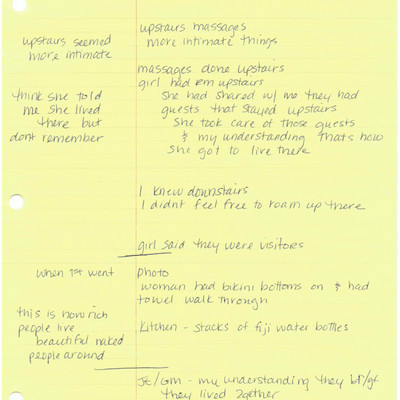 upstairs massages
upstairs seemed more intimate things
more intimate
massages done upstairs
girl had rm upstairs
think she told She had shared w/ me they had
me she lived guests that stayed upstairs
there but She took care of those guests
dont remember & my understanding thats how
she got to live there
I knew downstairs
I didnt feel free to roam up there
girl said they were visitors
when 1st went photo
woman had bikini bottoms on & had
towel walk through
this is how rich
people live Kitchen - stacks of fiji water bottles
beautiful naked
people around
JE/GM - my understanding they bf/gf
they lived 2gether